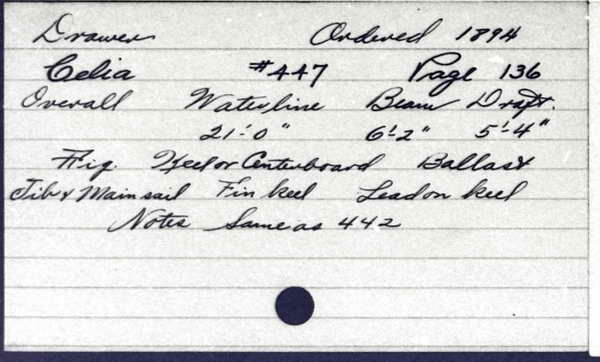 Drawer Ordered 1894
Celia #447 Page 136
Overall Waterline Beam Draft.
21'-0" 6'-2" 5'-4"
Rig. Keel or Centerboard Ballast
Jib & Mainsail Fin keel Lead on keel
Notes Same as 442